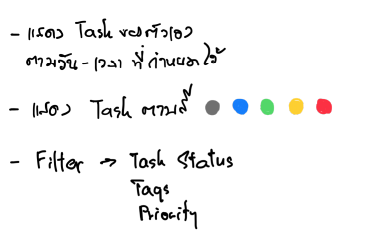 - แสดง Task ของตัวเอง
ตามวัน - เวลา ที่กำหนดไว้
- แสดง Task ตามสี
- Filter → Task Status
Tags
Priority